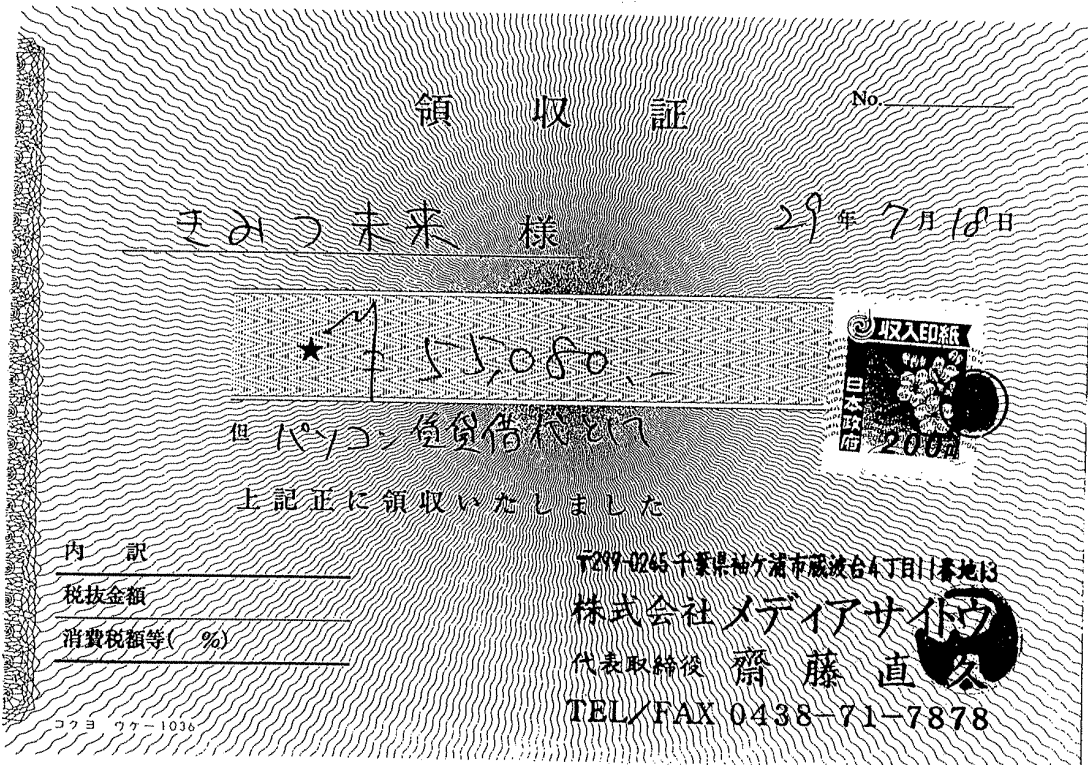 領収証
No.
きみつ未来 様
29年 7月 18日
★ ¥55,080.-
収入印紙
日本政府
200円
但 パソコン賃貸借代として
上記正に領収いたしました
内 訳
税抜金額
消費税額等( %)
〒299-0245 千葉県袖ケ浦市蔵波台4丁目11番地13
株式会社メディアサイトウ
代表取締役 齋藤直久
TEL/FAX 0438-71-7878
コクヨ ウケ-1036